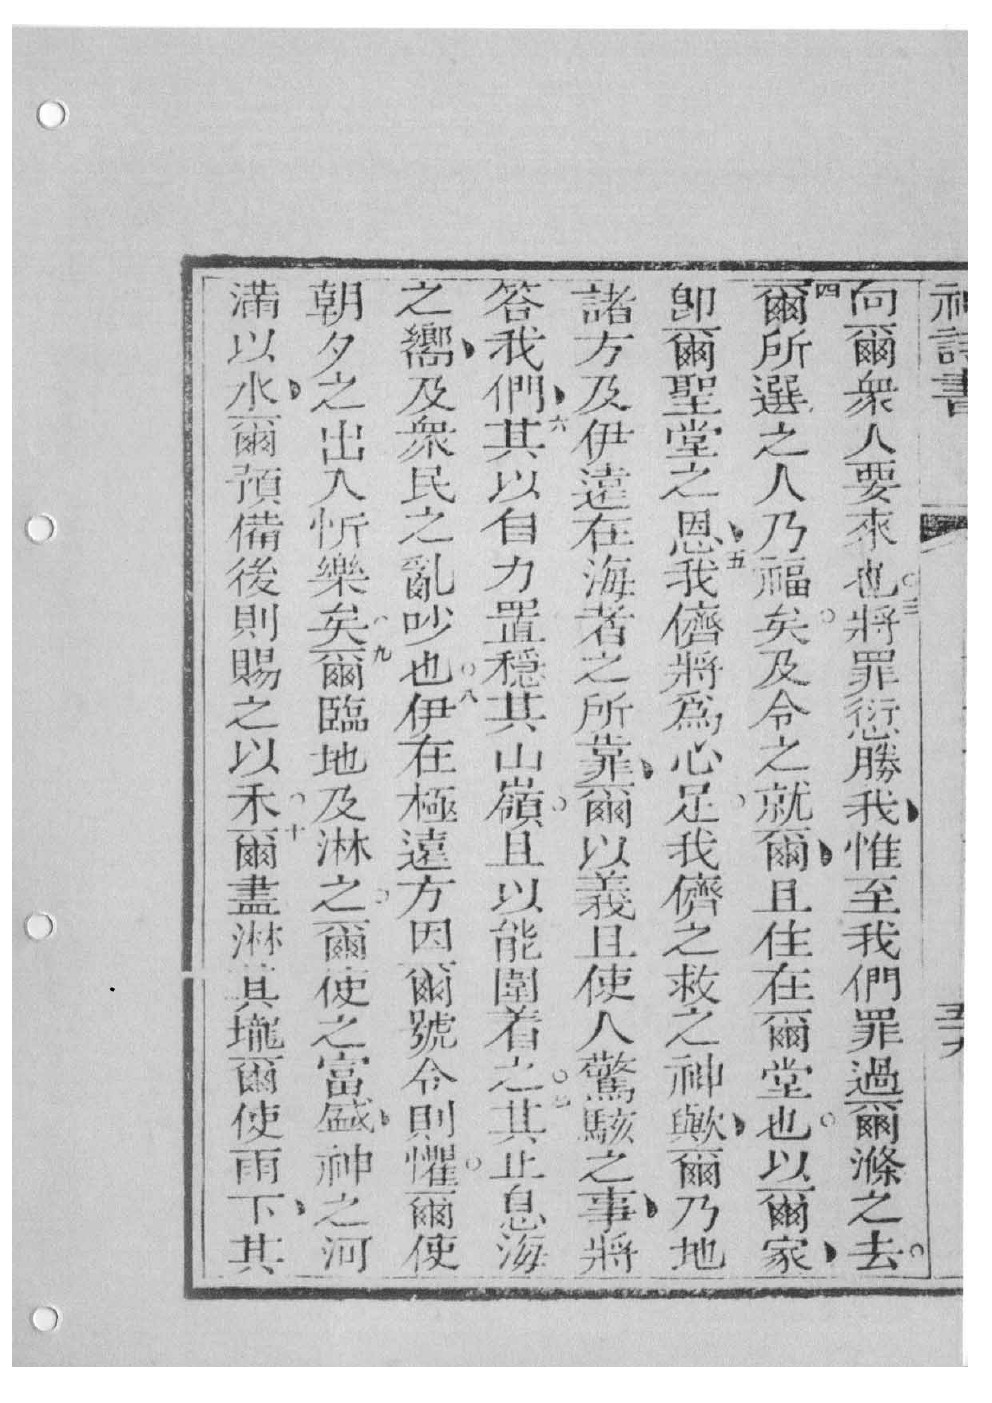 神詩書
向爾衆人要來也。三將罪愆勝我、惟至我們罪過爾滌之去。
四爾所選之人乃福矣。及令之就爾、且住在爾堂也。以爾家、
卽爾聖堂之恩、五我儕將爲心足。我儕之救之神歟、爾乃地
諸方及伊遠在海者之所靠、爾以義且使人驚駭之事、將
答我們、六其以自力置穩其山嶺。且以能圍着之。七其止息海
之嚮、及衆民之亂吵也。八伊在極遠方因爾號令則懼。爾使
朝夕之出入忻樂矣。九爾臨地及淋之。爾使之富盛、神之河
滿以水、爾預備後則賜之以禾。十爾盡淋其壠爾使雨下、其